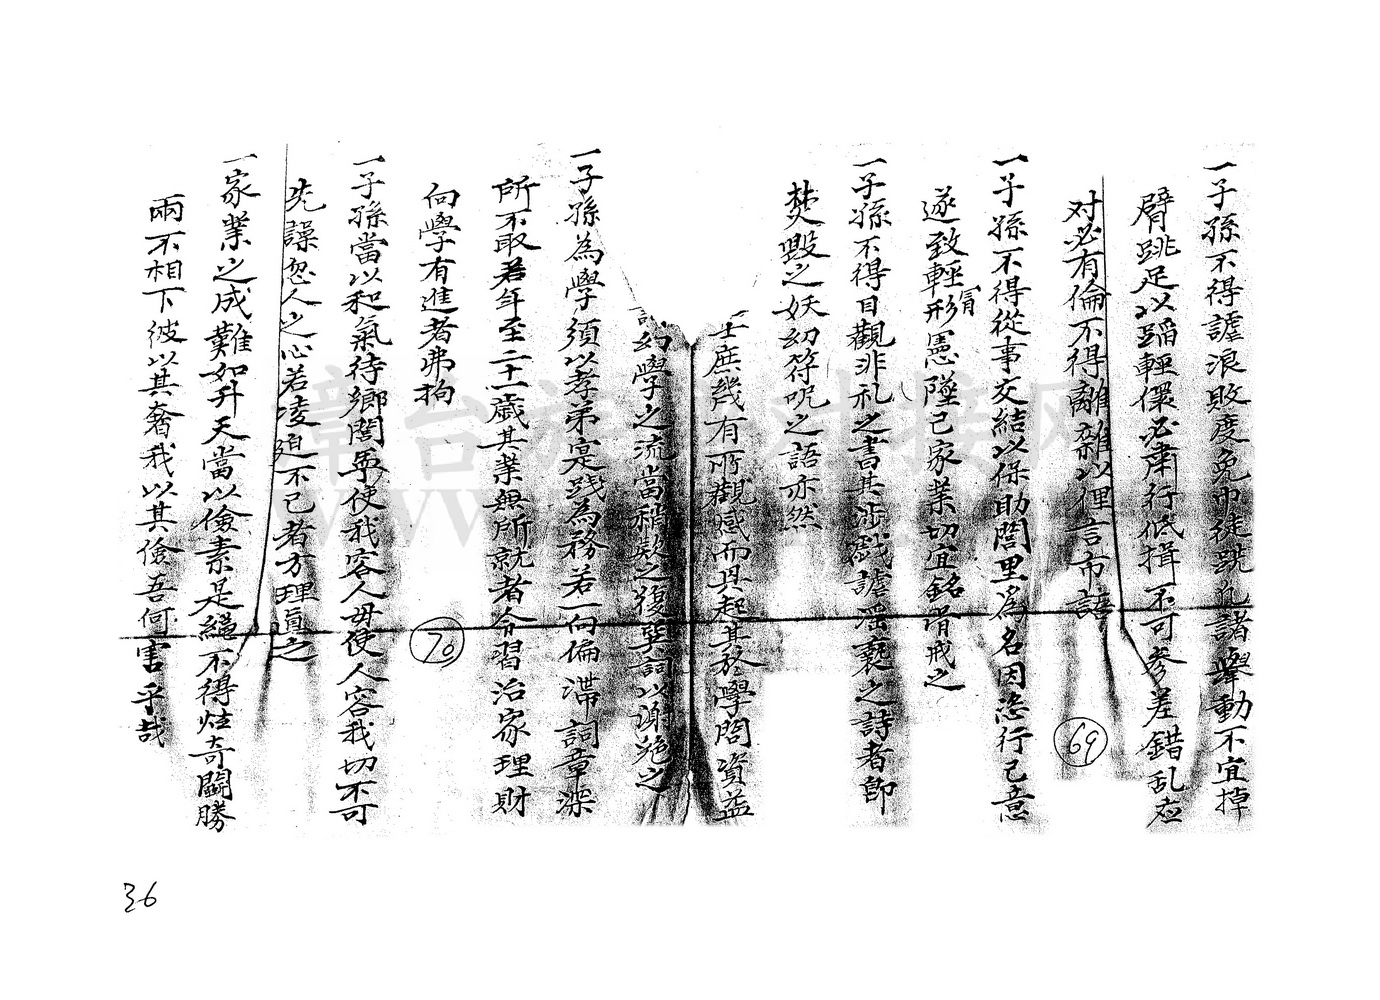 一子孫不得謔浪敗度免巾徒跣凡諸舉動不宜掉
臂跳足以蹈輕儇必肅行低揖不可參差錯乱应
对必有倫不得離雜以俚言市諺
69
一子孫不得從事交結以保助閭里為名因恣行己意
遂致輕冒形憲墜己家業切宜銘骨戒之
一子孫不得目觀非礼之書其涉戲謔淫褻之詩者即
焚毀之妖幻符咒之語亦然
士庶幾有所觀感而興起其於學問資益
幼學之流當稍欵之復遜詞以謝絕之
一子孫為學須以孝弟寔踐為務若一向偏滯詞章深
所不取若年至二十一歲其業無所就者令習治家理財
向學有進者弗拘
70
一子孫當以和氣待鄉閭寧使我容人毋使人容我切不可
先譟忽人之心若凌迫不已者方理直之
一家業之成難如升天當以儉素是繩不得炫奇鬭勝
兩不相下彼以其奢我以其儉吾何害乎哉
36
章台族
对接网
www